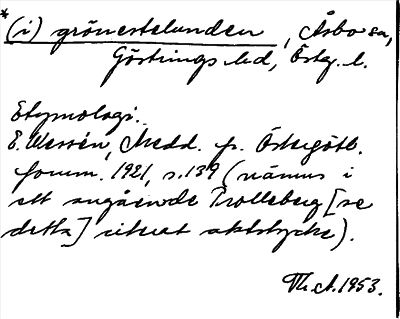 *(i) grönestelunden, Åsbo sn,
Göstrings hd, Östg. l.
Etymologi:
E. Wessén, Medd. fr. Östergötl.
fornm. 1921, s. 139 (nämns i
ett angående Trolleberg [se
detta] citerat aktstycke).
Th. A. 1953.